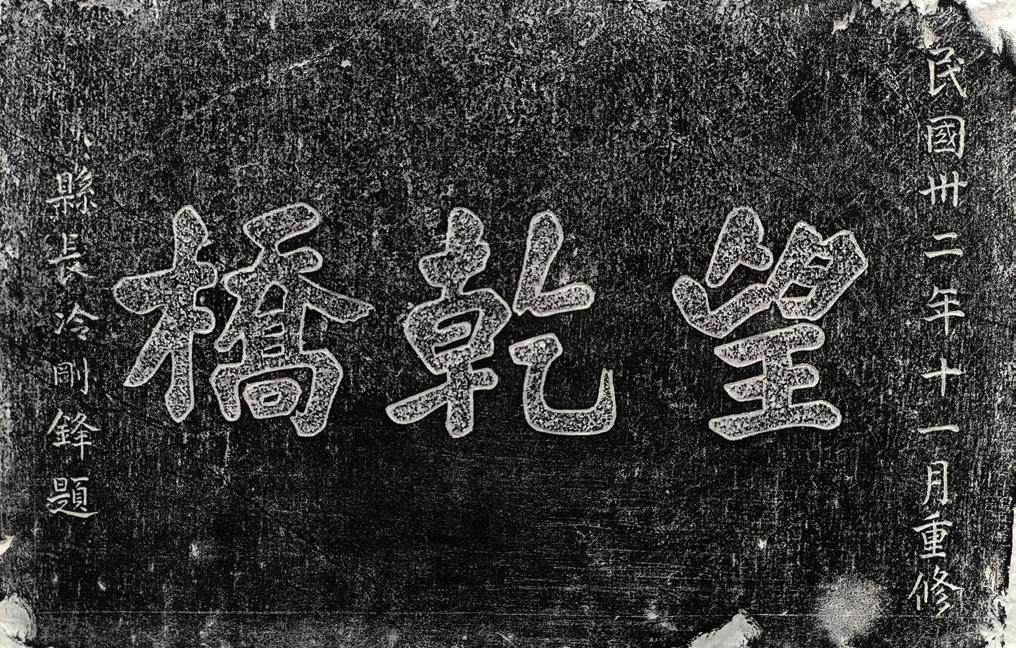 民國卅二年十一月重修
望乾橋
縣長冷剛鋒題